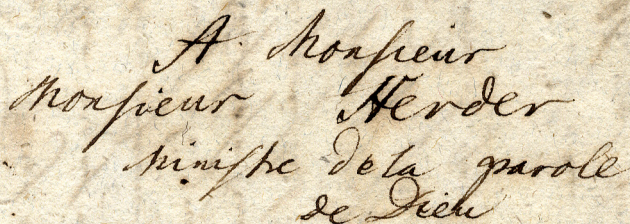 A Monsieur
Monsieur Herder
Ministre de la parole
de Dieu